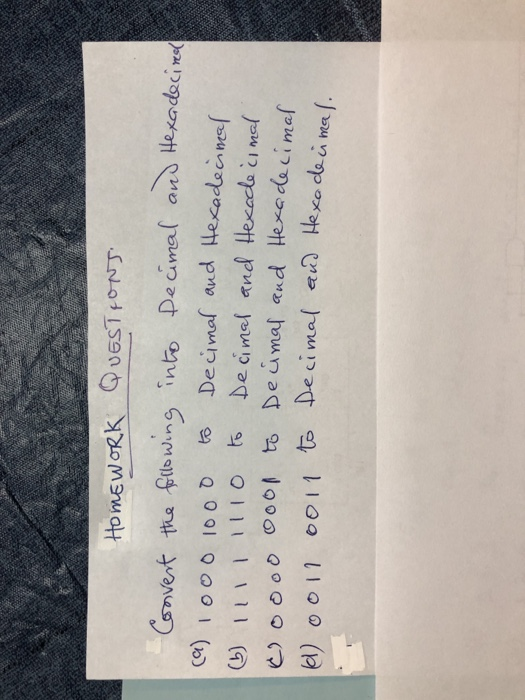 HOMEWORK QUESTIONS.
Convert the following into Decimal and Hexadecimal
(a) 1000 1000 to Decimal and Hexadecimal
(b) 1111 1110 to Decimal and Hexadecimal
(c) 0000 0001 to Decimal and Hexadecimal
(d) 0011 0011 to Decimal and Hexadecimal.